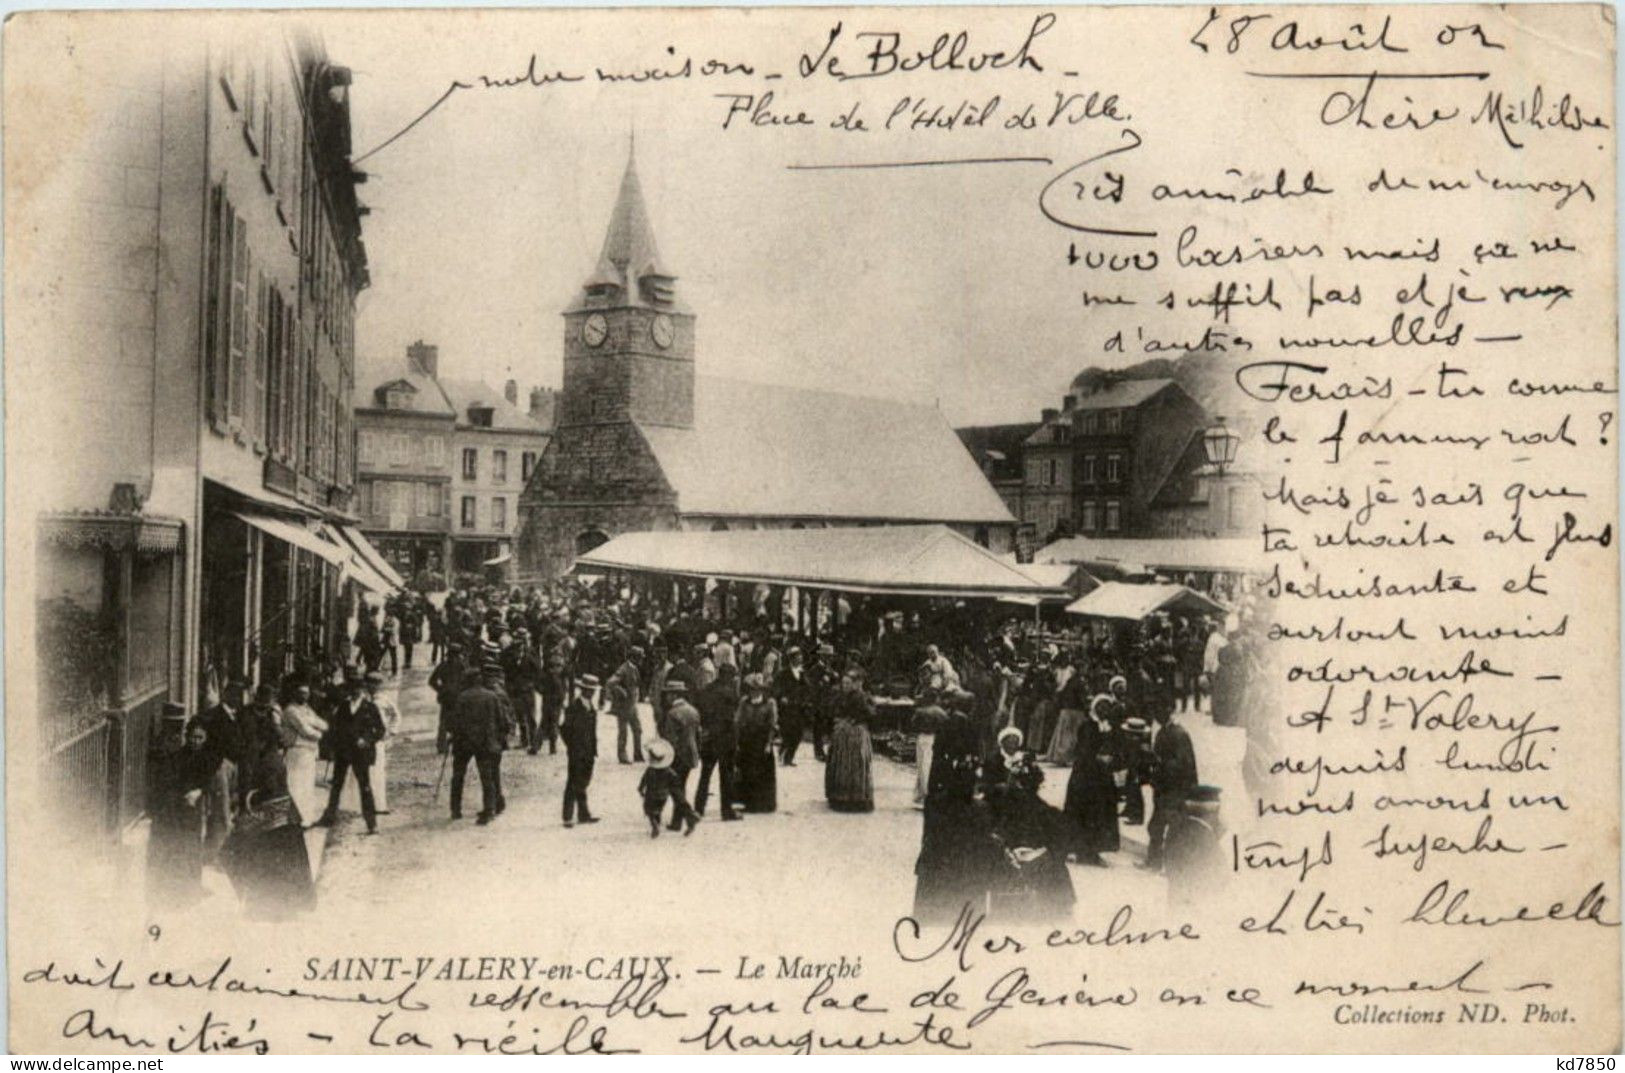 28 Août 02
notre maison - Le Bolloch -
Place de l'Hotêl de Ville.
Chère Mathilde
Très aimable de m'envoyer
1000 basiers mais ça ne
me suffit pas et je veux
d'autres nouvelles -
Ferais-tu comme
le fameux rat ?
Mais je sais que
ta retraite est plus
séduisante et
surtout moins
odorante -
A St Valery
depuis lundi
nous avons un
temps superbe -
Mer calme et très bleue elle
doit certainement ressembler au lac de Genève en ce moment -
Amitiés - Ta vieille Marguerite -
9
SAINT-VALERY-en-CAUX. - Le Marché
Collections ND. Phot.
kd7850
delcampe.net